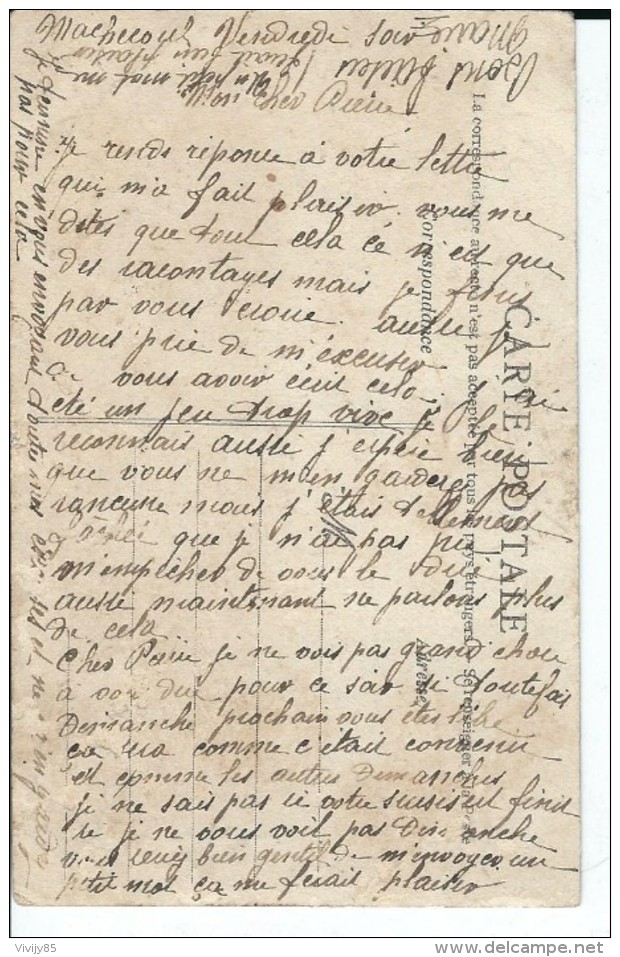 Machecoul Vendredi soir
Cher Pierre
Je rends réponse à votre lettre
qui m'a fait plaisir. vous me
dites que tout cela ce n'est que
des racontages mais je finis
par vous croire. aussi je
vous prie de m'éxcuser
de vous avoir écrit cela. j'ai
été un peu trop vive je le
reconnais aussi j'espère bien
que vous ne m'en garderez pas
rancune mais j'étais tellement
que je n'ai pas pu
m'empêcher de vous le dire
aussi maintenant ne parlons plus
de cela
Cher Pierre je ne vois pas grand chose
à vous dire pour ce soir si toutefois
Dimanche prochain vous êtes libre
ça sera comme c'était convenu
et comme les autres Dimanches
je ne sais pas si votre sursis est finit
si je ne vous voit pas Dimanche
vous seriez bien gentil de m'envoyer un
petit mot ça me ferait plaisir
Je termine en vous envoyant toutes mes
pas pour cela
Bons baisers
Marie
un petit mot me
ferait plaisir
CARTE POSTALE
La correspondance au recto n'est pas acceptée par tous les pays étrangers. Se renseigner à la Poste
Correspondance
Adresse
Vivijy85
delcampe.net